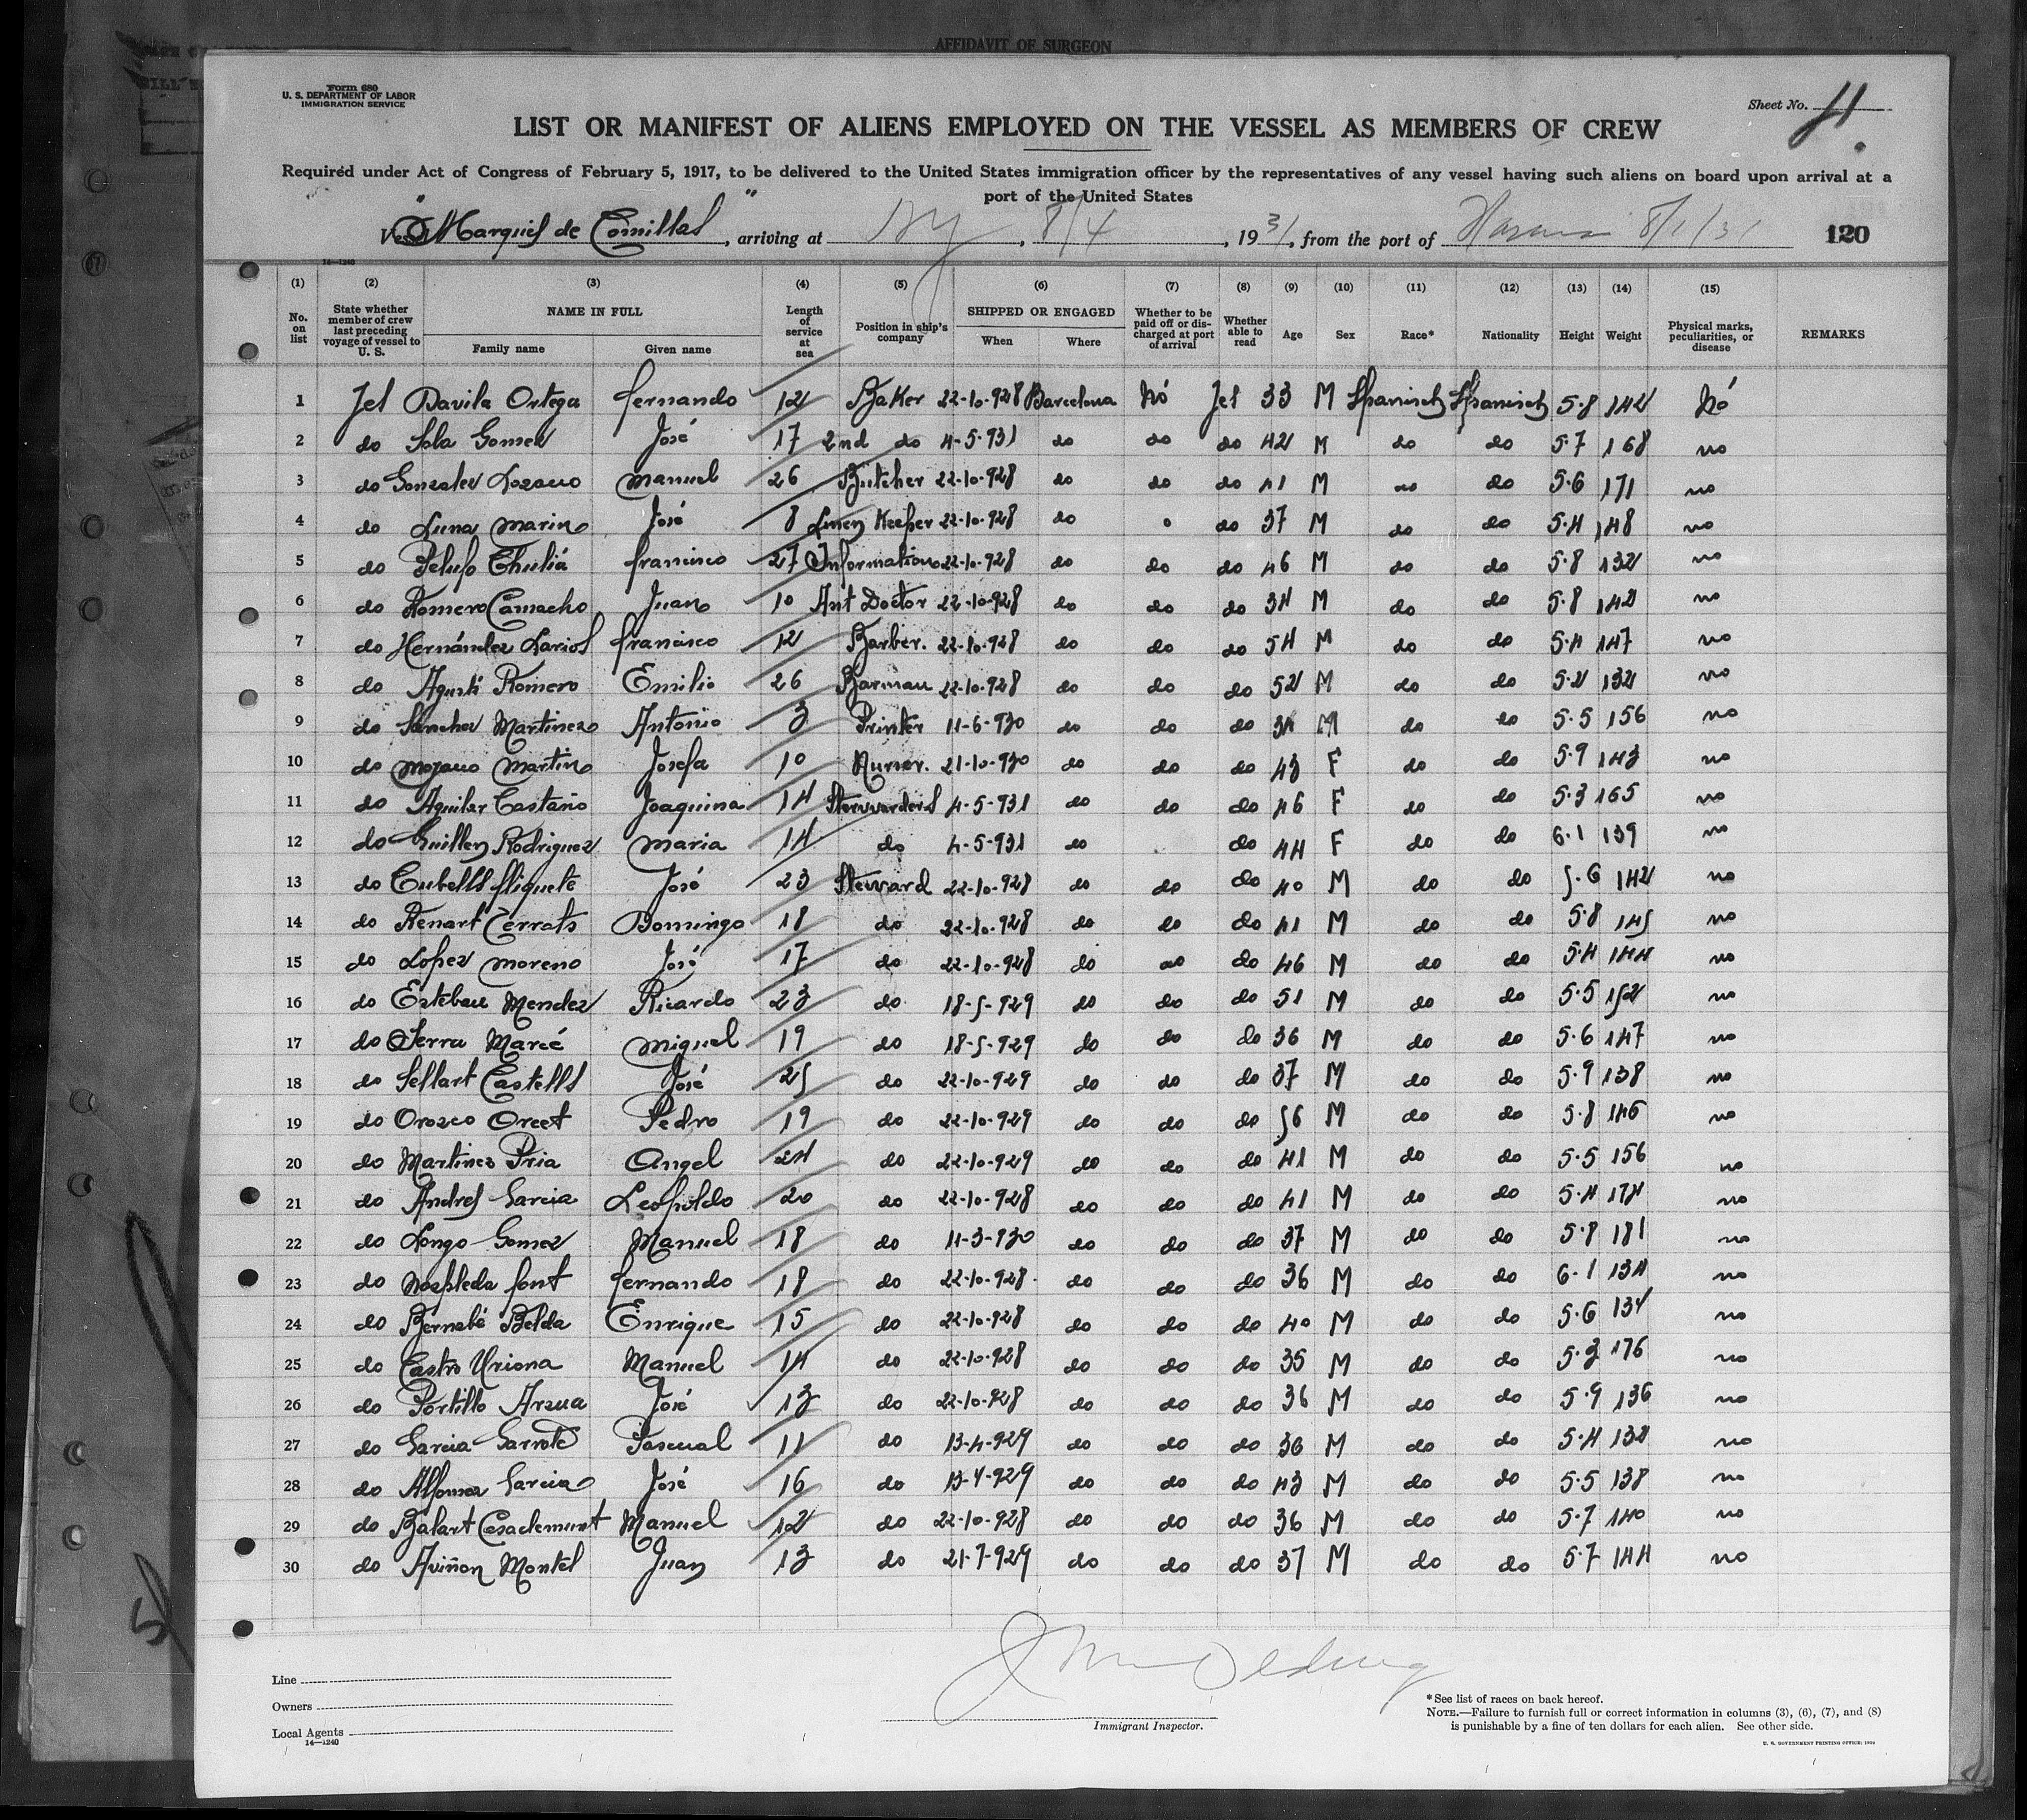 AFFIDAVIT OF SURGEON
Form 680
U. S. DEPARTMENT OF LABOR
IMMIGRATION SERVICE
Sheet No. 4
LIST OR MANIFEST OF ALIENS EMPLOYED ON THE VESSEL AS MEMBERS OF CREW
Required under Act of Congress of February 5, 1917, to be delivered to the United States immigration officer by the representatives of any vessel having such aliens on board upon arrival at a
port of the United States
Vessel "Marqués de Comillas", arriving at NY, 8/4, 1931, from the port of Havana 8/1/31 120
14—1240
(1) (2) (3) (4) (5) (6) (7) (8) (9) (10) (11) (12) (13) (14) (15)
No. on list State whether member of crew last preceding voyage of vessel to U. S. NAME IN FULL Family name Given name Length of service at sea Position in ship's company SHIPPED OR ENGAGED When Where Whether to be paid off or discharged at port of arrival Whether able to read Age Sex Race* Nationality Height Weight Physical marks, peculiarities, or disease REMARKS
1 Jes Davila Ortega fernando 12 Baker 22-10-928 Barcelona Nó Jes 33 M Spanisch Spanisch 5·8 142 Nó
2 do Sola Gomez José 17 2nd do 4-5-931 do do do 42 M do do 5·7 168 no
3 do Gonzalez Lozano manuel 26 Butcher 22-10-928 do do do 41 M do do 5·6 171 no
4 do Luna marin José 8 Linen Keeper 22-10-928 do do 37 M do do 5·4 148 no
5 do Pelufo Chuliá francisco 27 Information 22-10-928 do do do 46 M do do 5·8 132 no
6 do Romero Camacho Juan 10 Ant Doctor 22-10-928 do do do 34 M do do 5·8 142 no
7 do Hernández Larios francisco 12 Barber. 22-10-928 do do do 54 M do do 5·4 147 no
8 do Agustí Romero Emilio 26 Barman 22-10-928 do do do 52 M do do 5·2 132 no
9 do Sanchez Martinez Antonio 3 Printer 11-6-930 do do do 34 M do do 5·5 156 no
10 do mozano martin Josefa 10 Nurser. 21-10-930 do do do 43 F do do 5·9 143 no
11 do Aguilar Castaño Joaquina 14 Stewarders 4-5-931 do do do 46 F do do 5·3 165 no
12 do Guillen Rodriguez maria 14 do 4-5-931 do do 44 F do do 6·1 139 no
13 do Cubells fliquete José 23 Steward 22-10-928 do do do 40 M do do 5·6 142 no
14 do Renart Cerrats Domingo 18 do 22-10-928 do do do 41 M do do 5·8 145 no
15 do Lopez moreno José 17 do 22-10-928 do do do 46 M do do 5·4 144 no
16 do Esteban Mendez Ricardo 23 do 18-5-929 do do do 51 M do do 5·5 152 no
17 do Serra Marcé miguel 19 do 18-5-929 do do do 36 M do do 5·6 147 no
18 do Sellart Castells José 25 do 22-10-929 do do do 37 M do do 5·9 138 no
19 do Orozco Orcet Pedro 19 do 22-10-929 do do do 56 M do do 5·8 146 no
20 do Martinez Pria Angel 24 do 22-10-929 do do do 41 M do do 5·5 156 no
21 do Andres Garcia Leopoldo 20 do 22-10-928 do do do 41 M do do 5·4 174 no
22 do Longo Gomez Manuel 18 do 11-3-930 do do do 37 M do do 5·8 181 no
23 do Nospleda font fernando 18 do 22-10-928 do do do 36 M do do 6·1 134 no
24 do Bernabé Belda Enrique 15 do 22-10-928 do do do 40 M do do 5·6 134 no
25 do Castro Uriona Manuel 14 do 22-10-928 do do do 35 M do do 5·3 176 no
26 do Portillo Arzua José 13 do 22-10-928 do do do 36 M do do 5·9 136 no
27 do Garcia Garrote Pascual 11 do 13-4-929 do do do 36 M do do 5·4 132 no
28 do Alfonsea Garcia José 16 do 13-4-929 do do do 43 M do do 5·5 138 no
29 do Balart Casademunt Manuel 12 do 22-10-928 do do do 36 M do do 5·7 140 no
30 do Aviñon Montel Juan 13 do 21-7-929 do do do 37 M do do 5·7 144 no
Line
Owners
Local Agents
14—1240
Immigrant Inspector.
*See list of races on back hereof.
NOTE.—Failure to furnish full or correct information in columns (3), (6), (7), and (8)
is punishable by a fine of ten dollars for each alien. See other side.
U. S. GOVERNMENT PRINTING OFFICE: 1928